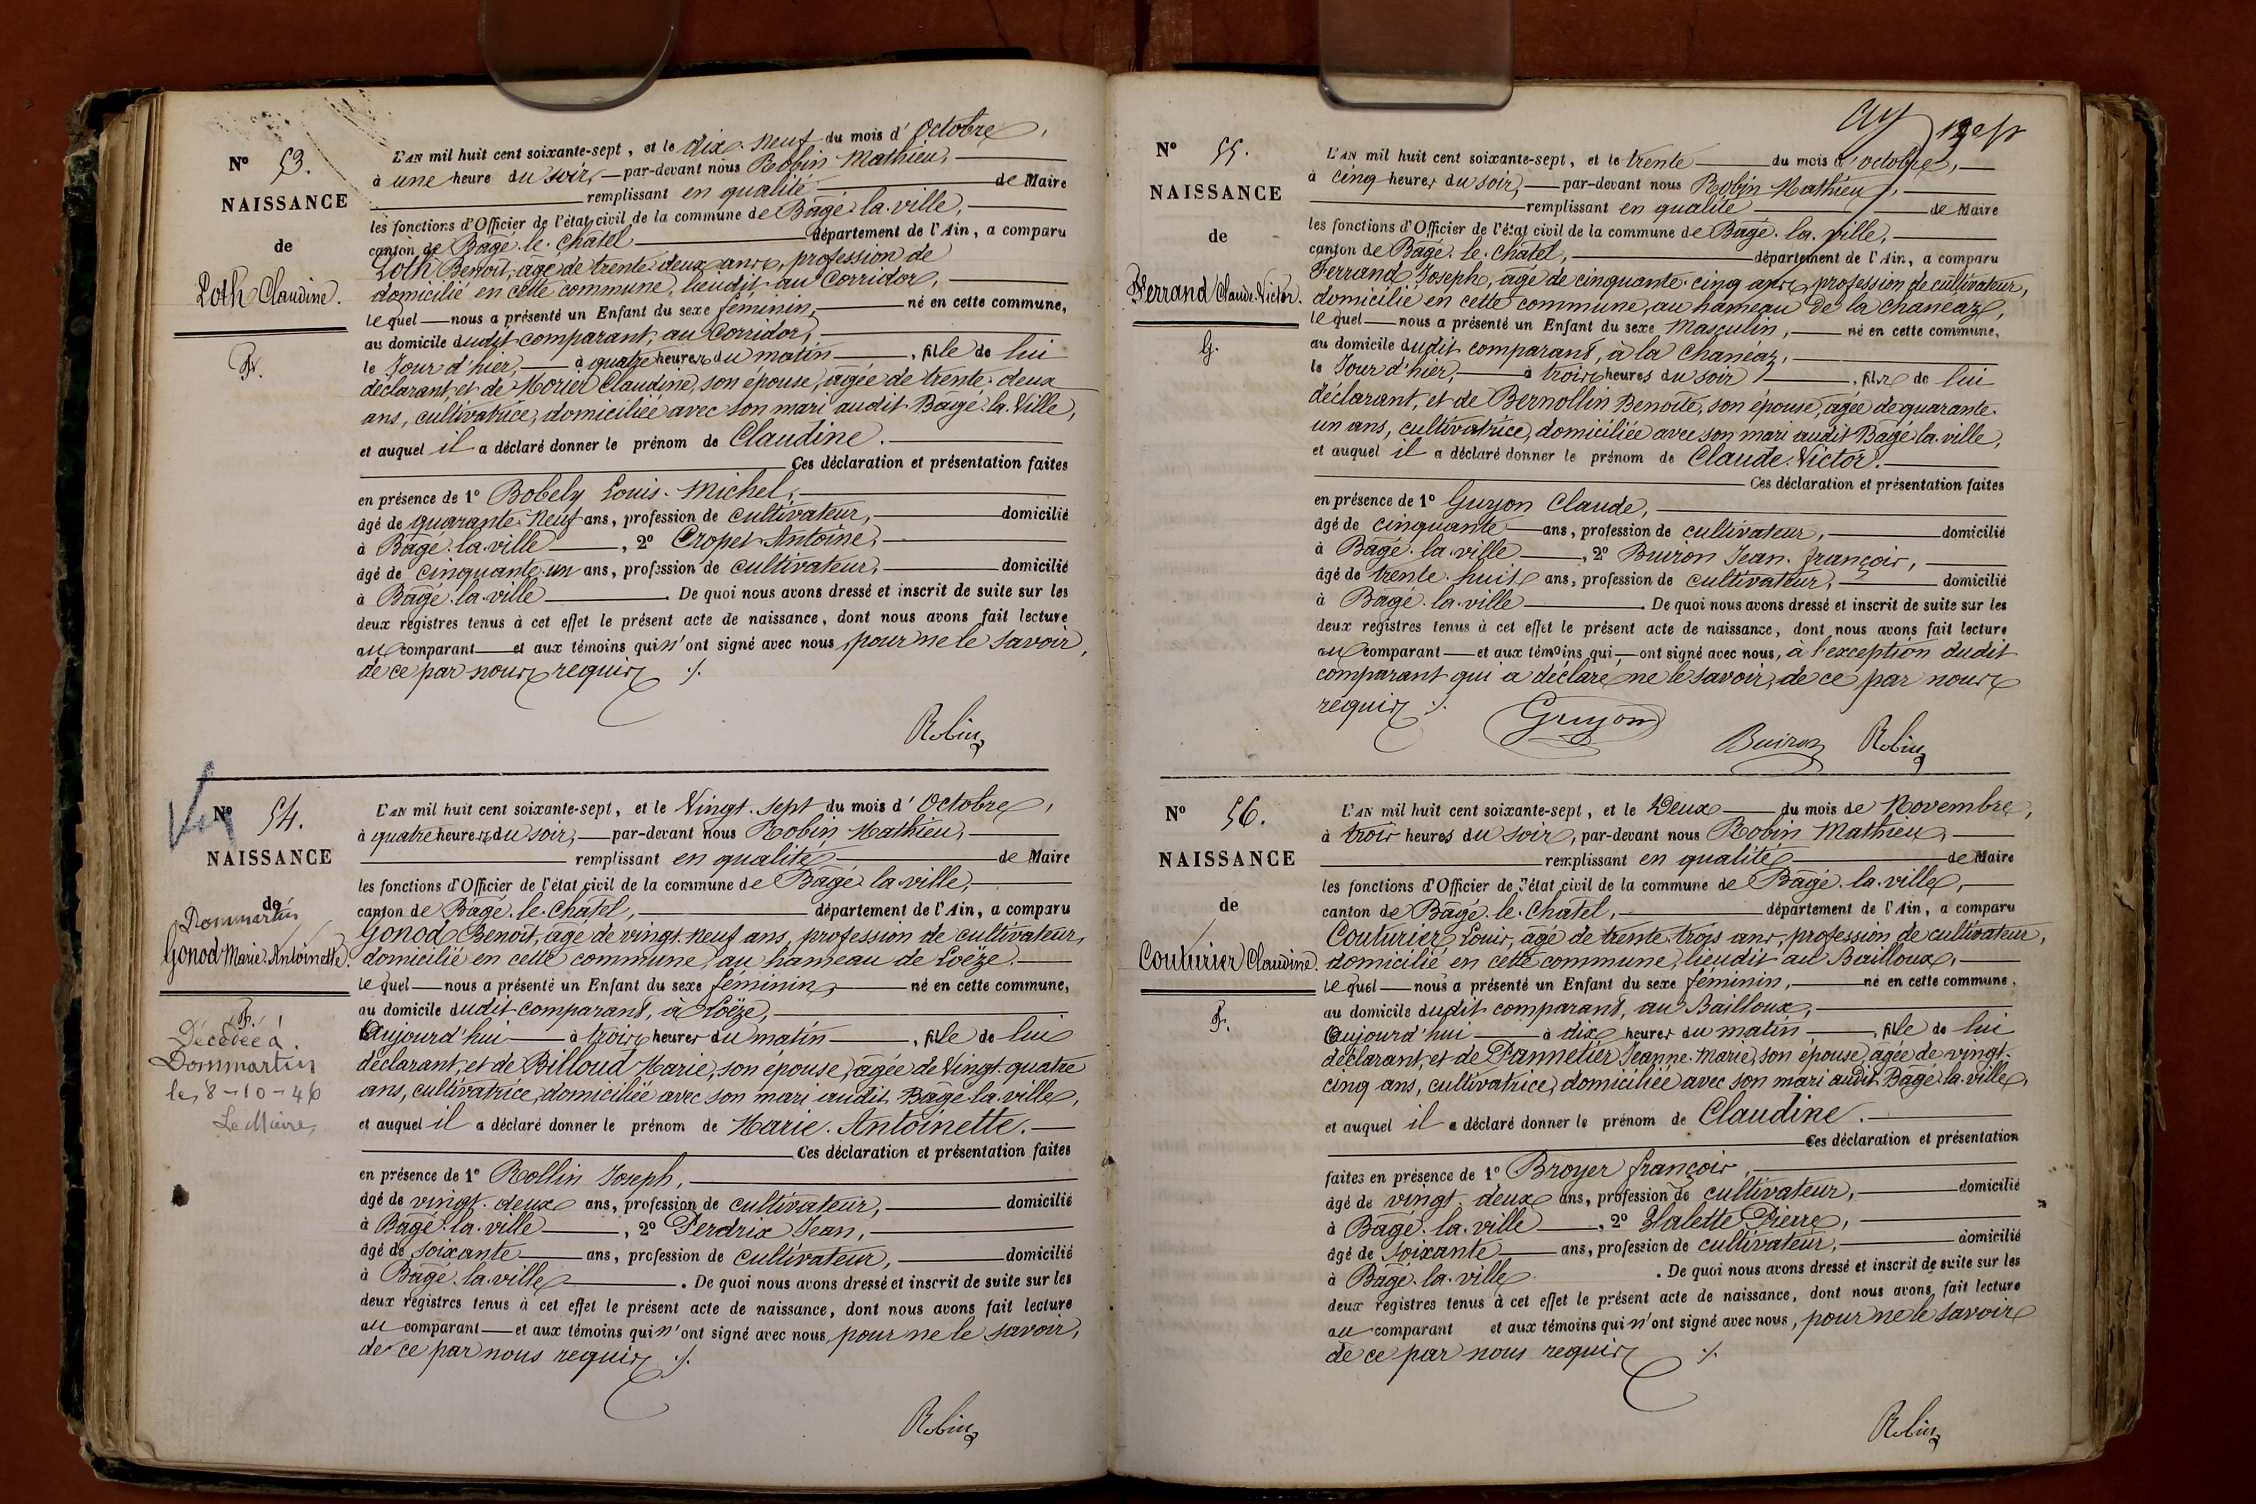 N° 53.
NAISSANCE
de
Loth Claudine.
F.
L'AN mil huit cent soixante-sept, et le dix-neuf du mois d'Octobre,
à une heure du soir, par-devant nous Robin Mathieu,
remplissant en qualité de Maire
les fonctions d'Officier de l'état civil de la commune de Bâgé-la-ville,
canton de Bâgé-le-Châtel département de l'Ain, a comparu
Loth Benoit, âgé de trente-deux ans, profession de
domicilié en cette commune, lieudit au Corridor,
lequel nous a présenté un Enfant du sexe féminin, né en cette commune,
au domicile dudit comparant, au Corridor,
le Jour d'hier, à quatre heures du matin, fille de lui
déclarant, et de Morier Claudine, son épouse, âgée de trente-deux
ans, cultivatrice, domiciliée avec son mari audit Bâgé-la-Ville,
et auquel il a déclaré donner le prénom de Claudine.
Ces déclaration et présentation faites
en présence de 1° Bobely Louis-Michel,
âgé de quarante-neuf ans, profession de cultivateur, domicilié
à Bâgé-la-ville, 2° Cropet Antoine,
âgé de cinquante-un ans, profession de cultivateur, domicilié
à Bâgé-la-ville. De quoi nous avons dressé et inscrit de suite sur les
deux registres tenus à cet effet le présent acte de naissance, dont nous avons fait lecture
au comparant et aux témoins qui n'ont signé avec nous, pour ne le savoir,
de ce par nous requis ./.
Robin
N° 54.
NAISSANCE
de
Dommartin
Gonod Marie-Antoinette.
F.
Décédée à
Dommartin
le 8-10-46
Le Maire,
L'AN mil huit cent soixante-sept, et le Vingt-sept du mois d'Octobre,
à quatre heures du soir, par-devant nous Robin Mathieu,
remplissant en qualité de Maire
les fonctions d'Officier de l'état civil de la commune de Bâgé-la-ville,
canton de Bâgé-le-Châtel, département de l'Ain, a comparu
Gonod Benoit, âgé de vingt-neuf ans, profession de cultivateur,
domicilié en cette commune, au hameau de Loëze.
lequel nous a présenté un Enfant du sexe féminin, né en cette commune,
au domicile dudit comparant, à Loëze,
Aujourd'hui à trois heures du matin, fille de lui
déclarant, et de Billoud Marie, son épouse, âgée de Vingt-quatre
ans, cultivatrice, domiciliée avec son mari audit Bâgé-la-ville,
et auquel il a déclaré donner le prénom de Marie-Antoinette.
Ces déclaration et présentation faites
en présence de 1° Rollin Joseph,
âgé de vingt-deux ans, profession de cultivateur, domicilié
à Bâgé-la-ville, 2° Perdrix Jean,
âgé de soixante ans, profession de cultivateur, domicilié
à Bâgé-la-ville. De quoi nous avons dressé et inscrit de suite sur les
deux registres tenus à cet effet le présent acte de naissance, dont nous avons fait lecture
au comparant et aux témoins qui n'ont signé avec nous, pour ne le savoir,
de ce par nous requis ./.
Robin
N° 55.
NAISSANCE
de
Ferrand Claude-Victor.
G.
L'AN mil huit cent soixante-sept, et le trente du mois d'octobre,
à cinq heures du soir, par-devant nous Robin Mathieu,
remplissant en qualité de Maire
les fonctions d'Officier de l'état civil de la commune de Bâgé-la-ville,
canton de Bâgé-le-Châtel, département de l'Ain, a comparu
Ferrand Joseph, âgé de cinquante-cinq ans, profession de cultivateur,
domicilié en cette commune, au hameau de la chanéaz,
lequel nous a présenté un Enfant du sexe Masculin, né en cette commune,
au domicile dudit comparant, à la Chanéaz,
le Jour d'hier, à trois heures du soir, fils de lui
déclarant, et de Bernollin Benoite, son épouse, âgée de quarante-
un ans, cultivatrice, domiciliée avec son mari audit Bâgé-la-ville,
et auquel il a déclaré donner le prénom de Claude-Victor.
Ces déclaration et présentation faites
en présence de 1° Guyon Claude,
âgé de cinquante ans, profession de cultivateur, domicilié
à Bâgé-la-ville, 2° Buiron Jean-françois,
âgé de trente-huit ans, profession de cultivateur, domicilié
à Bâgé-la-ville. De quoi nous avons dressé et inscrit de suite sur les
deux registres tenus à cet effet le présent acte de naissance, dont nous avons fait lecture
au comparant et aux témoins qui ont signé avec nous, à l'exception dudit
comparant qui a déclaré ne le savoir, de ce par nous
requis ./.
Guyon
Buiron Robin
N° 56.
NAISSANCE
de
Couturier Claudine.
F.
L'AN mil huit cent soixante-sept, et le Deux du mois de Novembre,
à trois heures du soir, par-devant nous Robin Mathieu,
remplissant en qualité de Maire
les fonctions d'Officier de l'état civil de la commune de Bâgé-la-ville,
canton de Bâgé-le-Châtel, département de l'Ain, a comparu
Couturier Louis, âgé de trente-trois ans, profession de cultivateur,
domicilié en cette commune, lieudit au Bailloux,
lequel nous a présenté un Enfant du sexe féminin, né en cette commune,
au domicile dudit comparant, au Bailloux,
Aujourd'hui à dix heures du matin, fille de lui
déclarant, et de Pannetier Jeanne-Marie, son épouse, âgée de vingt-
cinq ans, cultivatrice, domiciliée avec son mari audit Bâgé-la-ville,
et auquel il a déclaré donner le prénom de Claudine.
Ces déclaration et présentation
faites en présence de 1° Broyer françois,
âgé de vingt-deux ans, profession de cultivateur, domicilié
à Bâgé-la-ville, 2° Halette Pierre,
âgé de soixante ans, profession de cultivateur, domicilié
à Bâgé-la-ville. De quoi nous avons dressé et inscrit de suite sur les
deux registres tenus à cet effet le présent acte de naissance, dont nous avons fait lecture
au comparant et aux témoins qui n'ont signé avec nous, pour ne le savoir
de ce par nous requis ./.
Robin